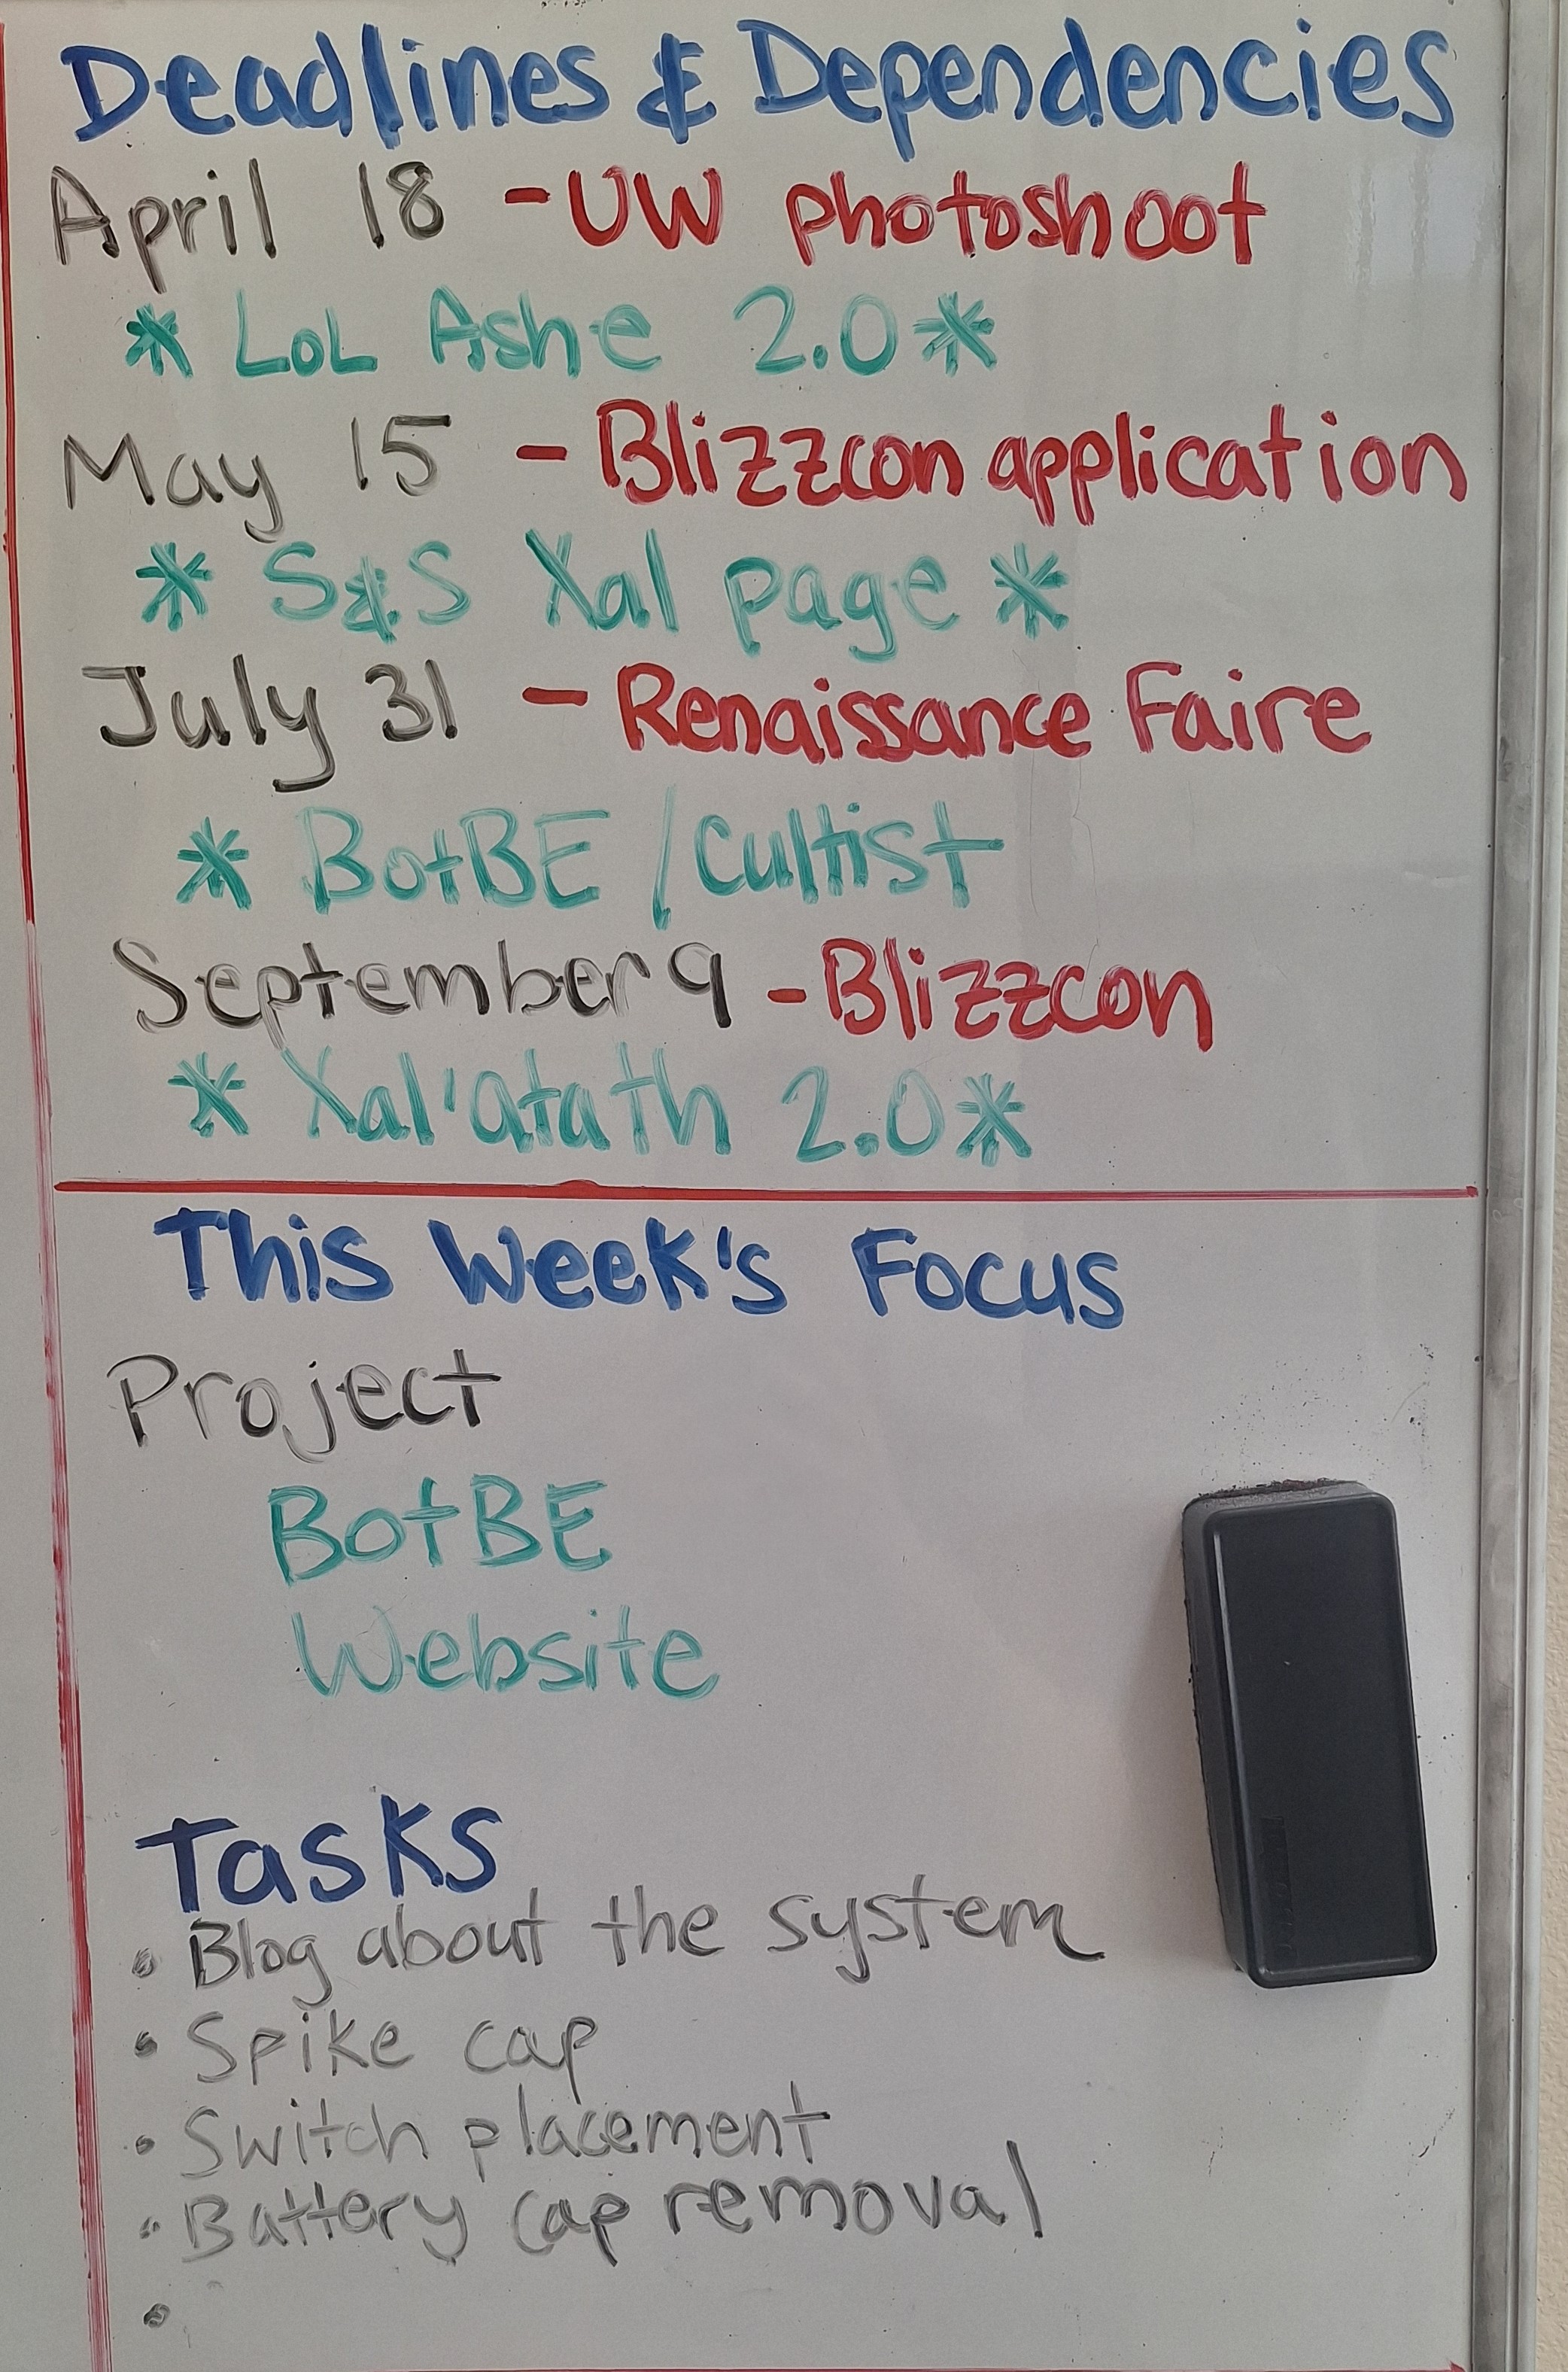 Deadlines & Dependencies
April 18 - UW photoshoot
* LoL Ashe 2.0 *
May 15 - Blizzcon application
* S&S Xal page *
July 31 - Renaissance Faire
* BotBE / Cultist
September 9 - Blizzcon
* Xal'atath 2.0 *
This Week's Focus
Project
BotBE
Website
Tasks
• Blog about the system
• Spike cap
• Switch placement
• Battery cap removal
•